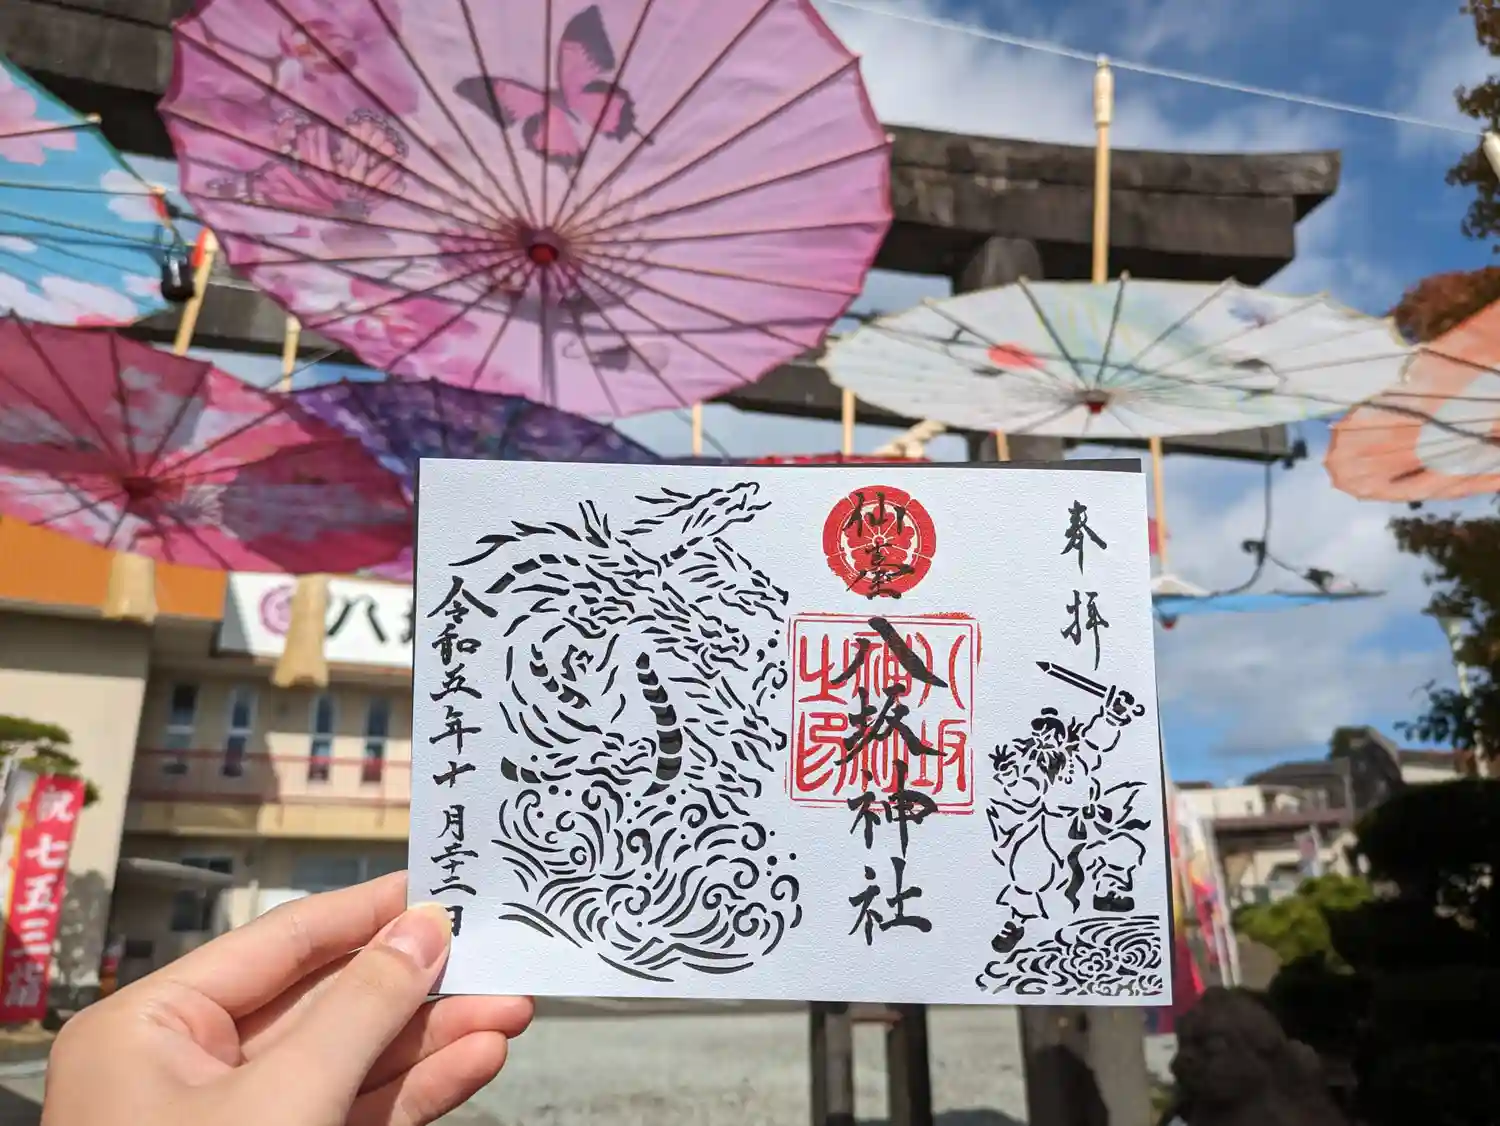 奉拝
仙臺
八坂神社
八坂
神社
之印
令和五年十月二十二日
八
祝七五三詣